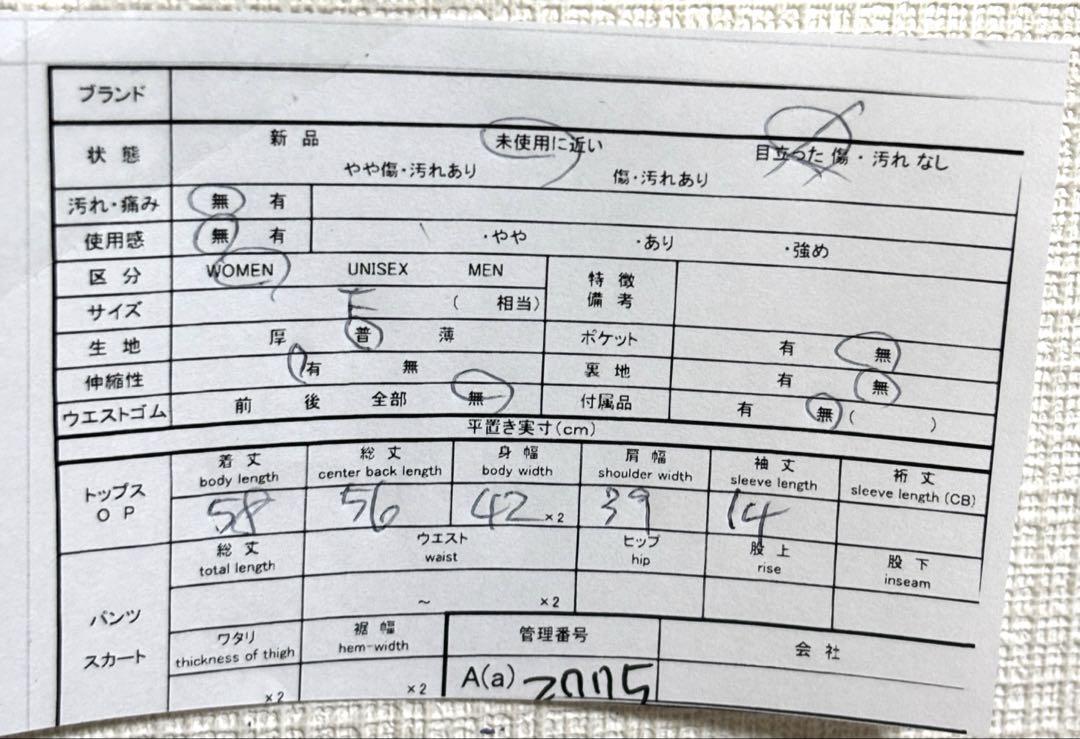 ブランド
状態 新品 未使用に近い 目立った傷・汚れなし
やや傷・汚れあり 傷・汚れあり
汚れ・痛み 無 有
使用感 無 有 ・やや ・あり ・強め
区分 WOMEN UNISEX MEN 特徴備考
サイズ F ( 相当)
生地 厚 普 薄 ポケット 有 無
伸縮性 有 無 裏地 有 無
ウエストゴム 前 後 全部 無 付属品 有 無 ( )
平置き実寸(cm)
トップス OP
着丈 総丈 身幅 肩幅 袖丈 裄丈
body length center back length body width shoulder width sleeve length sleeve length (CB)
58 56 42 ×2 39 14
パンツ スカート
総丈 ウエスト ヒップ 股上 股下
total length waist hip rise inseam
~ ×2
ワタリ 裾幅 管理番号 会社
thickness of thigh hem-width
×2 ×2 A(a)